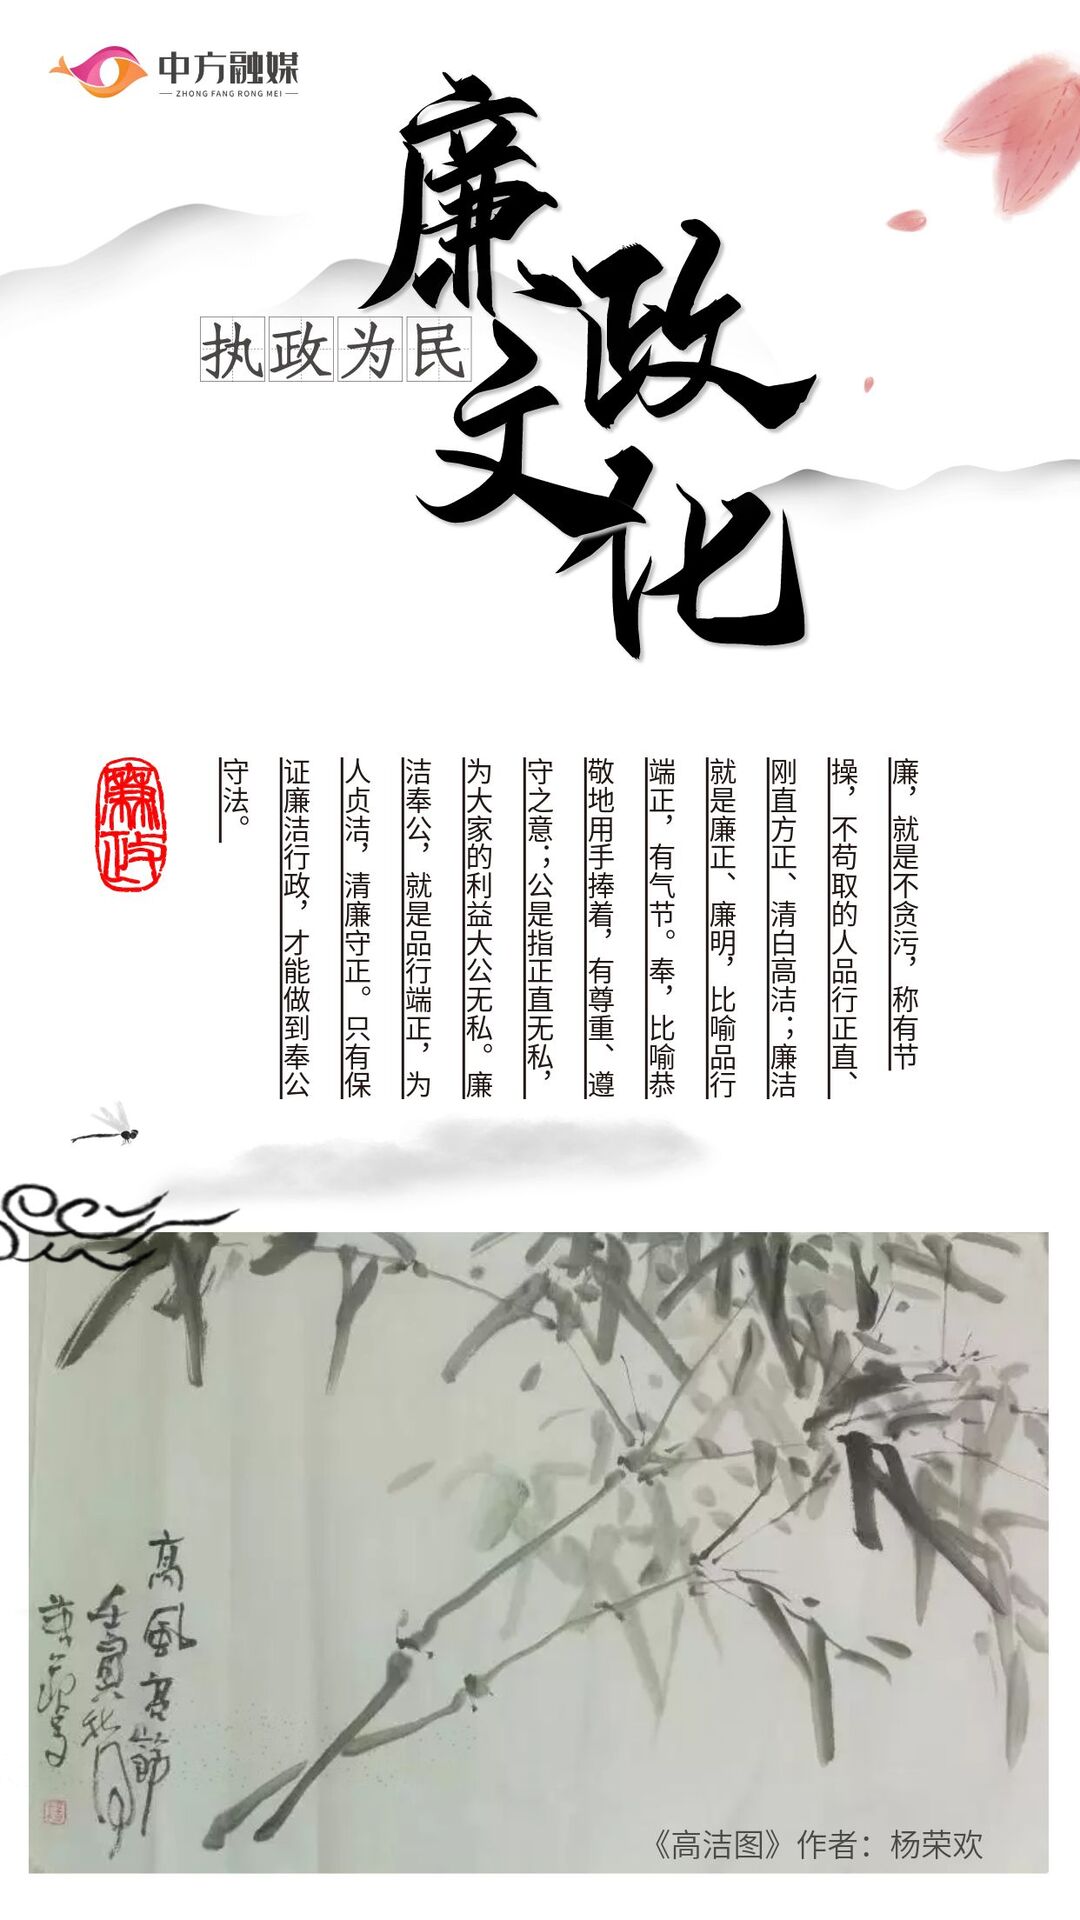 中方融媒
ZHONG FANG RONG MEI
廉政
文化
执政为民
廉，就是不贪污，称有节
操，不苟取的人品行正直、
刚直方正、清白高洁；廉洁
就是廉正、廉明，比喻品行
端正，有气节。奉，比喻恭
敬地用手捧着，有尊重、遵
守之意；公是指正直无私，
为大家的利益大公无私。廉
洁奉公，就是品行端正，为
人贞洁，清廉守正。只有保
证廉洁行政，才能做到奉公
守法。
廉政
高风高节
壬寅秋月
《高洁图》作者：杨荣欢